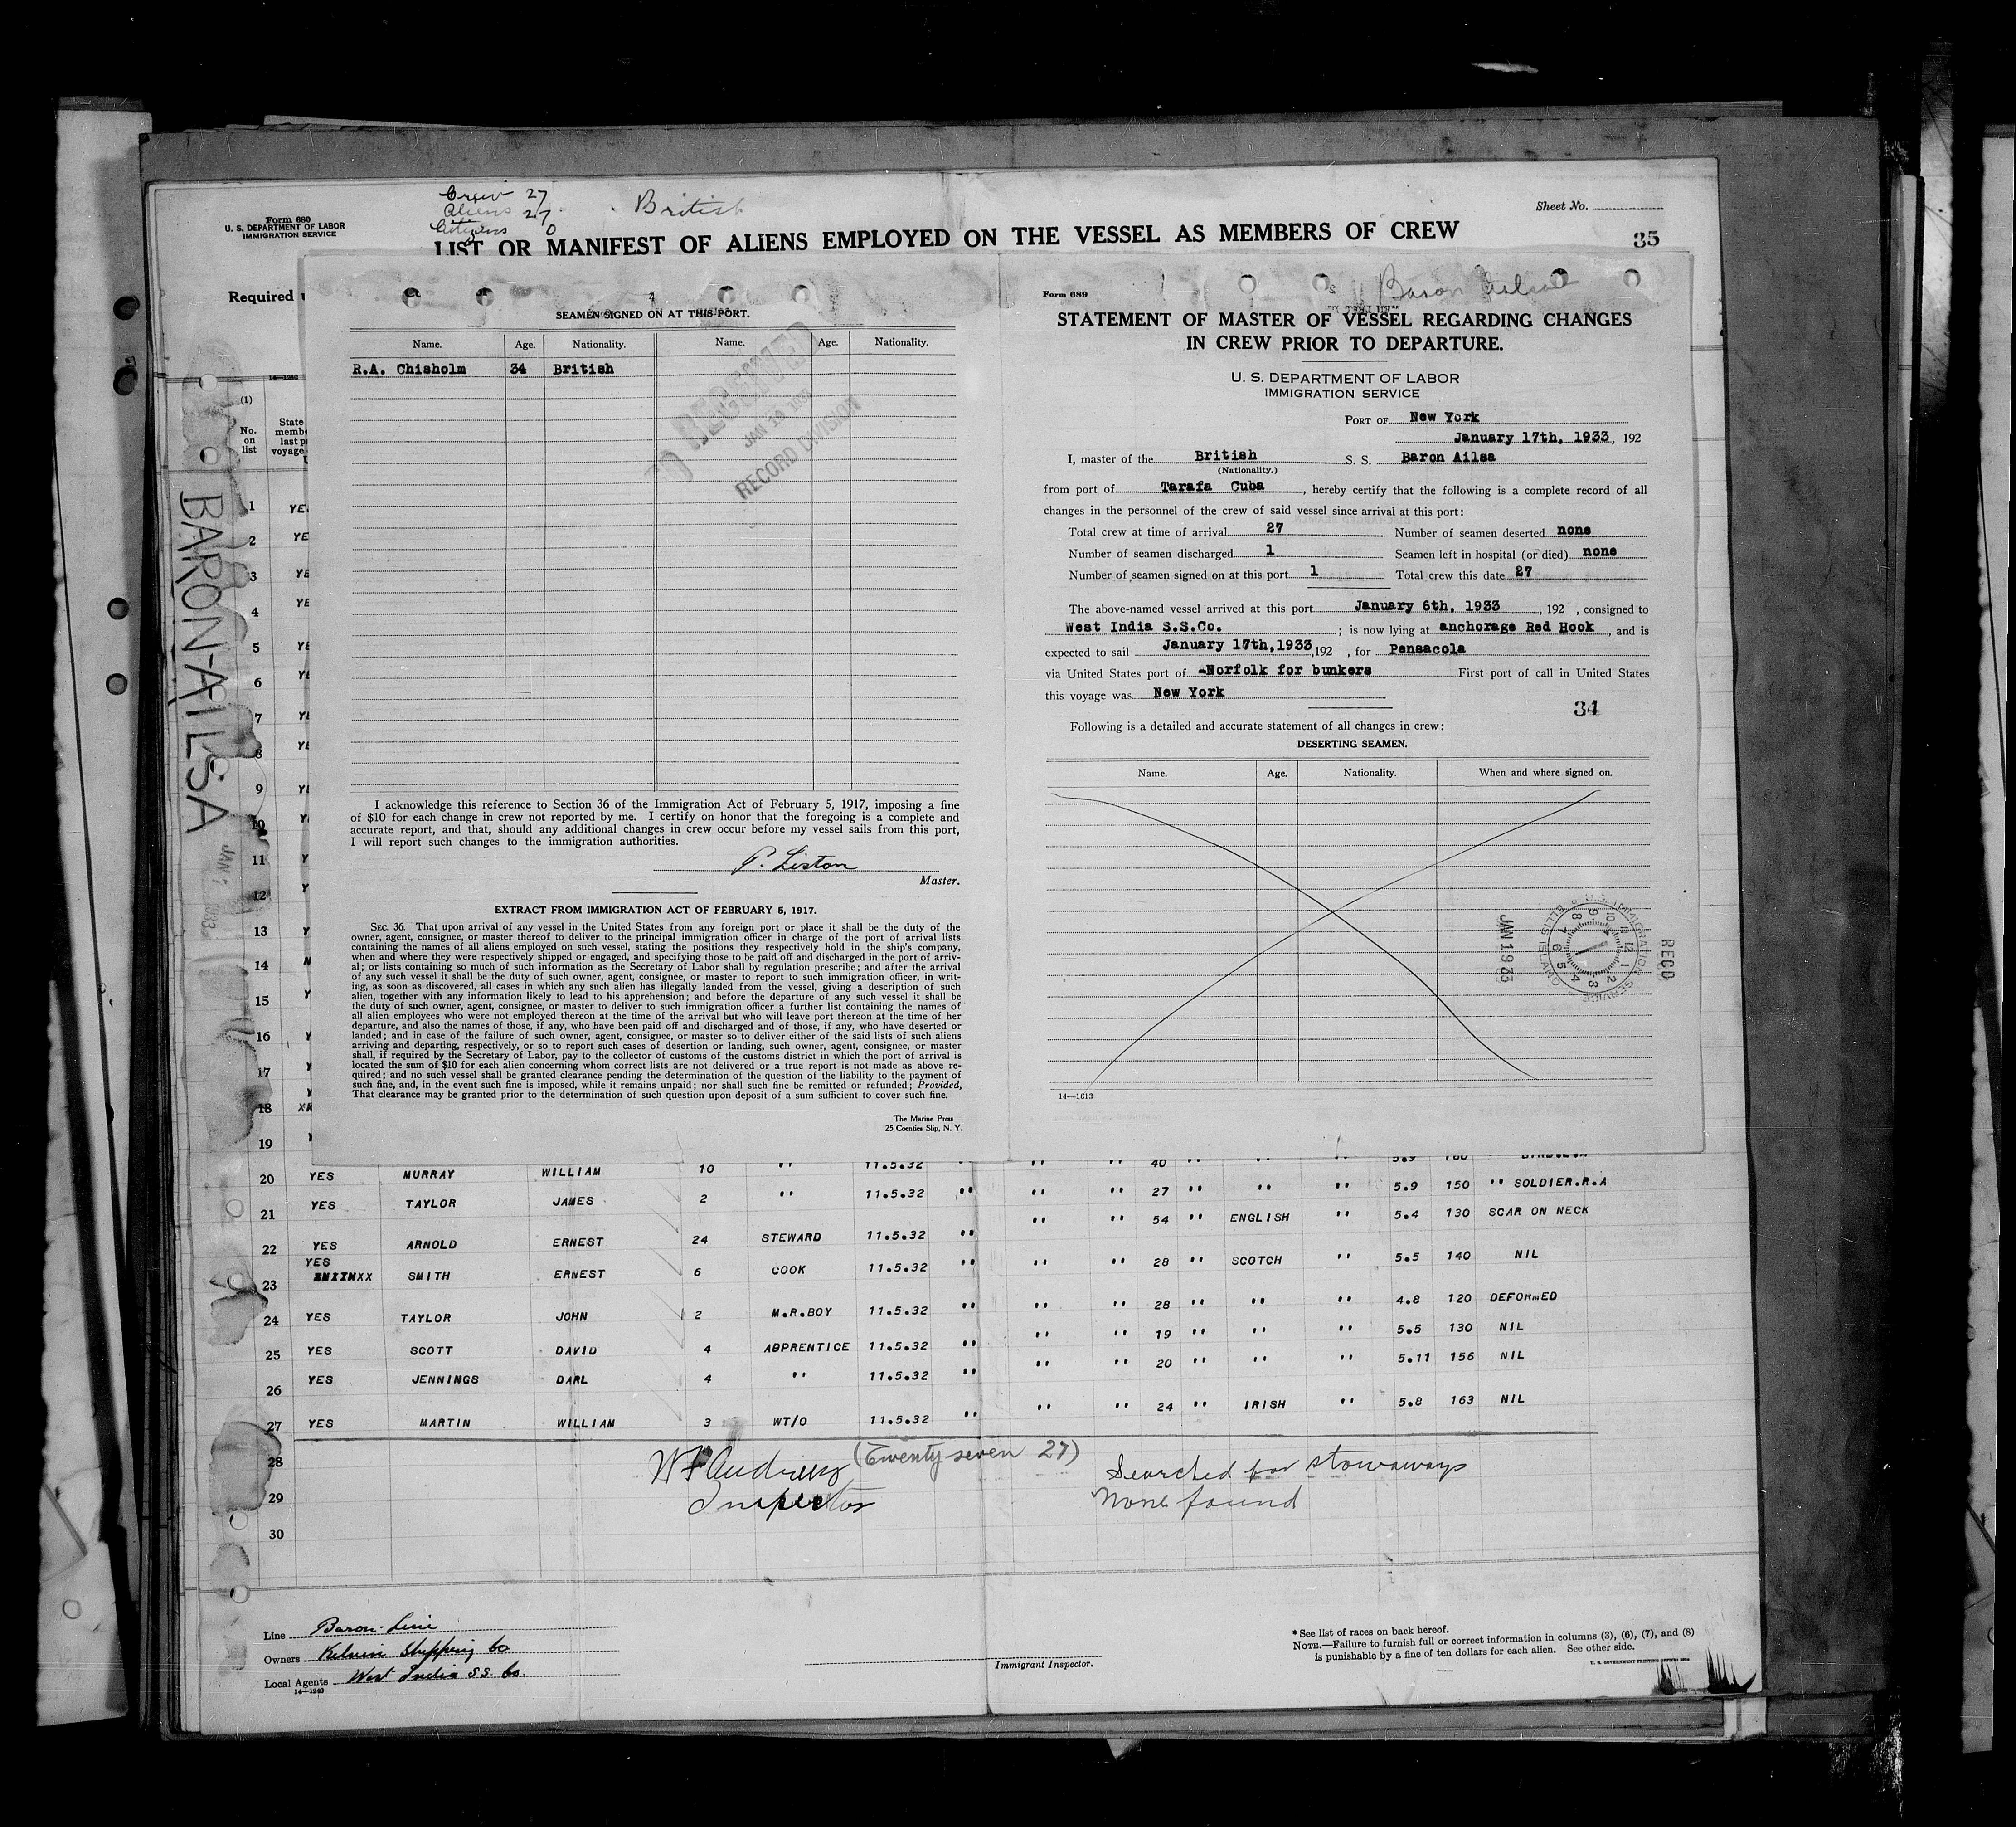 Form 680
U. S. DEPARTMENT OF LABOR
IMMIGRATION SERVICE
Crew 27
Aliens 27
Citizens 0
British
Sheet No.
LIST OR MANIFEST OF ALIENS EMPLOYED ON THE VESSEL AS MEMBERS OF CREW
35
Required
14—1240
(1)
No. on list
State
memb
last p
voyage
BARON-AILSA
JAN 7 1933
SEAMEN SIGNED ON AT THIS PORT.
Name. Age. Nationality. Name. Age. Nationality.
R.A. Chisholm 34 British
RECEIVED
JAN 19 1933
RECORD DIVISION
I acknowledge this reference to Section 36 of the Immigration Act of February 5, 1917, imposing a fine
of $10 for each change in crew not reported by me. I certify on honor that the foregoing is a complete and
accurate report, and that, should any additional changes in crew occur before my vessel sails from this port,
I will report such changes to the immigration authorities.
P. Liston
Master.
EXTRACT FROM IMMIGRATION ACT OF FEBRUARY 5, 1917.
SEC. 36. That upon arrival of any vessel in the United States from any foreign port or place it shall be the duty of the
owner, agent, consignee, or master thereof to deliver to the principal immigration officer in charge of the port of arrival lists
containing the names of all aliens employed on such vessel, stating the positions they respectively hold in the ship's company,
when and where they were respectively shipped or engaged, and specifying those to be paid off and discharged in the port of arriv-
al; or lists containing so much of such information as the Secretary of Labor shall by regulation prescribe; and after the arrival
of any such vessel it shall be the duty of such owner, agent, consignee, or master to report to such immigration officer, in writ-
ing, as soon as discovered, all cases in which any such alien has illegally landed from the vessel, giving a description of such
alien, together with any information likely to lead to his apprehension; and before the departure of any such vessel it shall be
the duty of such owner, agent, consignee, or master to deliver to such immigration officer a further list containing the names of
all alien employees who were not employed thereon at the time of the arrival but who will leave port thereon at the time of her
departure, and also the names of those, if any, who have been paid off and discharged and of those, if any, who have deserted or
landed; and in case of the failure of such owner, agent, consignee, or master so to deliver either of the said lists of such aliens
arriving and departing, respectively, or so to report such cases of desertion or landing, such owner, agent, consignee, or master
shall, if required by the Secretary of Labor, pay to the collector of customs of the customs district in which the port of arrival is
located the sum of $10 for each alien concerning whom correct lists are not delivered or a true report is not made as above re-
quired; and no such vessel shall be granted clearance pending the determination of the question of the liability to the payment of
such fine, and, in the event such fine is imposed, while it remains unpaid; nor shall such fine be remitted or refunded; Provided,
That clearance may be granted prior to the determination of such question upon deposit of a sum sufficient to cover such fine.
The Marine Press
25 Coenties Slip, N. Y.
Form 689
Baron Ailsa
STATEMENT OF MASTER OF VESSEL REGARDING CHANGES
IN CREW PRIOR TO DEPARTURE.
U. S. DEPARTMENT OF LABOR
IMMIGRATION SERVICE
PORT OF New York
January 17th, 1933, 192
I, master of the British S. S. Baron Ailsa
(Nationality.)
from port of Tarafa Cuba, hereby certify that the following is a complete record of all
changes in the personnel of the crew of said vessel since arrival at this port:
Total crew at time of arrival 27 Number of seamen deserted none
Number of seamen discharged 1 Seamen left in hospital (or died) none
Number of seamen signed on at this port 1 Total crew this date 27
The above-named vessel arrived at this port January 6th, 1933, 192 , consigned to
West India S.S.Co. ; is now lying at anchorage Red Hook, and is
expected to sail January 17th,1933,192 , for Pensacola
via United States port of Norfolk for bunkers First port of call in United States
this voyage was New York
34
Following is a detailed and accurate statement of all changes in crew:
DESERTING SEAMEN.
Name. Age. Nationality. When and where signed on.
JAN 19 33
U.S. IMMIGRATION SERVICE ELLIS ISLAND
RECD
14—1613
1 YE
2 YE
3 YE
4 YE
5 YE
6 YE
7 YE
8 YE
9 YE
10 Y
11 Y
12 Y
13 Y
14
15 Y
16 Y
17 Y
18
19
20 YES MURRAY WILLIAM 10 " 11.5.32 " " " 40 " " " 5.9
21 YES TAYLOR JAMES 2 " 11.5.32 " " " 27 " " " 5.9 150 " SOLDIER.R.A
22 YES ARNOLD ERNEST 24 STEWARD 11.5.32 " " " 54 " ENGLISH " 5.4 130 SCAR ON NECK
23 YES SMITH ERNEST 6 COOK 11.5.32 " " " 28 " SCOTCH " 5.5 140 NIL
24 YES TAYLOR JOHN 2 M.R.BOY 11.5.32 " " " 28 " " " 4.8 120 DEFORMED
25 YES SCOTT DAVID 4 ABPRENTICE 11.5.32 " " " 19 " " " 5.5 130 NIL
26 YES JENNINGS DARL 4 " 11.5.32 " " " 20 " " " 5.11 156 NIL
27 YES MARTIN WILLIAM 3 WT/O 11.5.32 " " " 24 " IRISH " 5.8 163 NIL
28
29
30
(Twenty seven 27)
W F Andrews
Inspector
Searched for stowaways
None found
Line Baron Line
Owners Kelvin Shipping Co
Local Agents West India S.S. Co.
14—1240
Immigrant Inspector.
* See list of races on back hereof.
NOTE.—Failure to furnish full or correct information in columns (3), (6), (7), and (8)
is punishable by a fine of ten dollars for each alien. See other side.